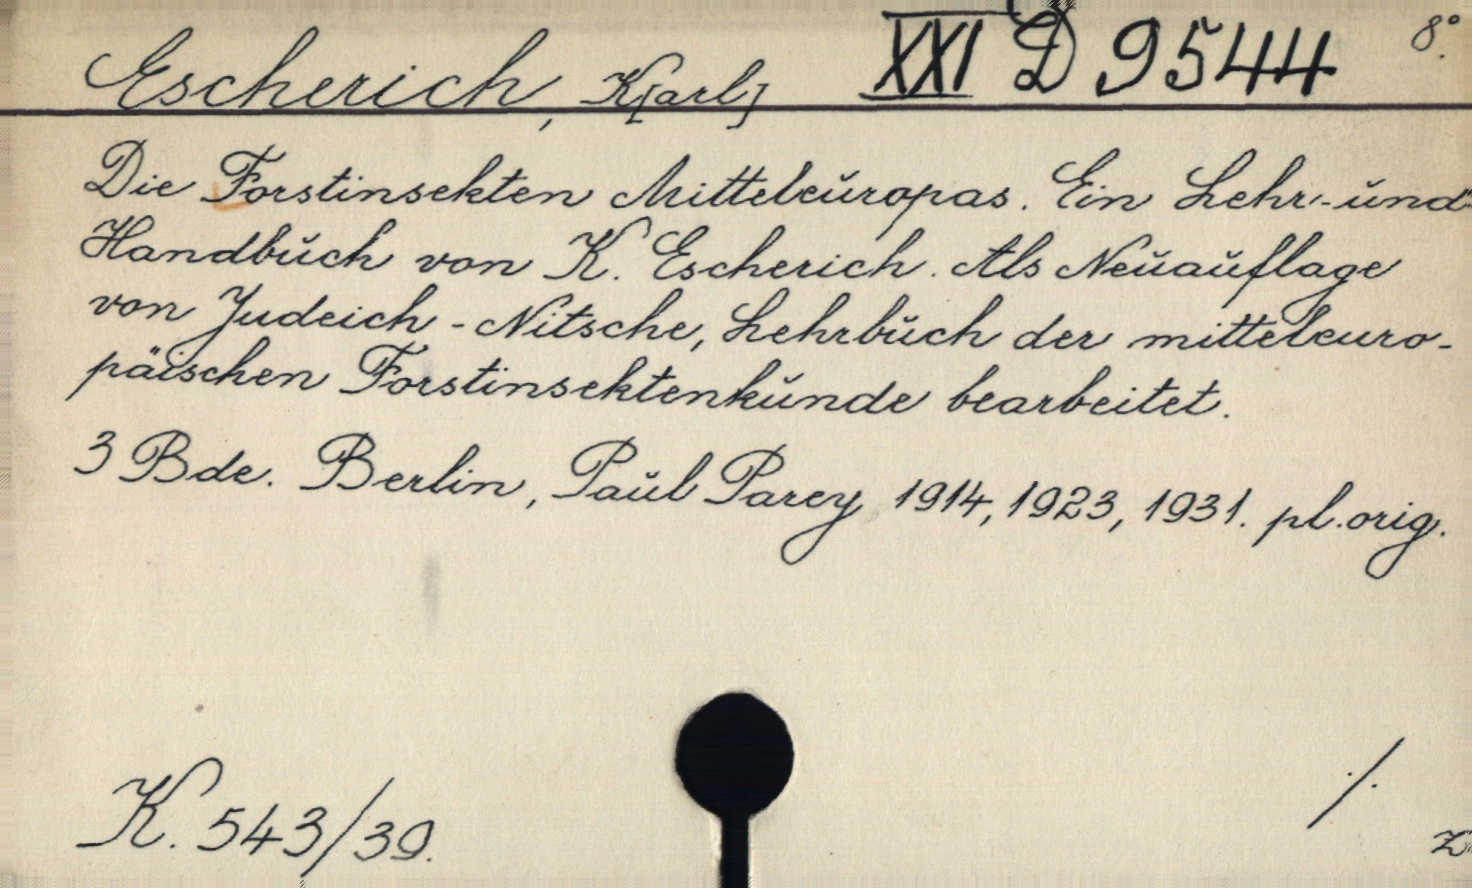 Escherich, K[arl] XXI D 9544 8°.
Die Forstinsekten Mitteleuropas. Ein Lehr- und
Handbuch von K. Escherich. Als Neuauflage
von Judeich - Nitsche, Lehrbuch der mitteleuro-
päischen Forstinsektenkunde bearbeitet.
3 Bde. Berlin, Paul Parey 1914, 1923, 1931. pl. orig.
./.
K. 543/39.